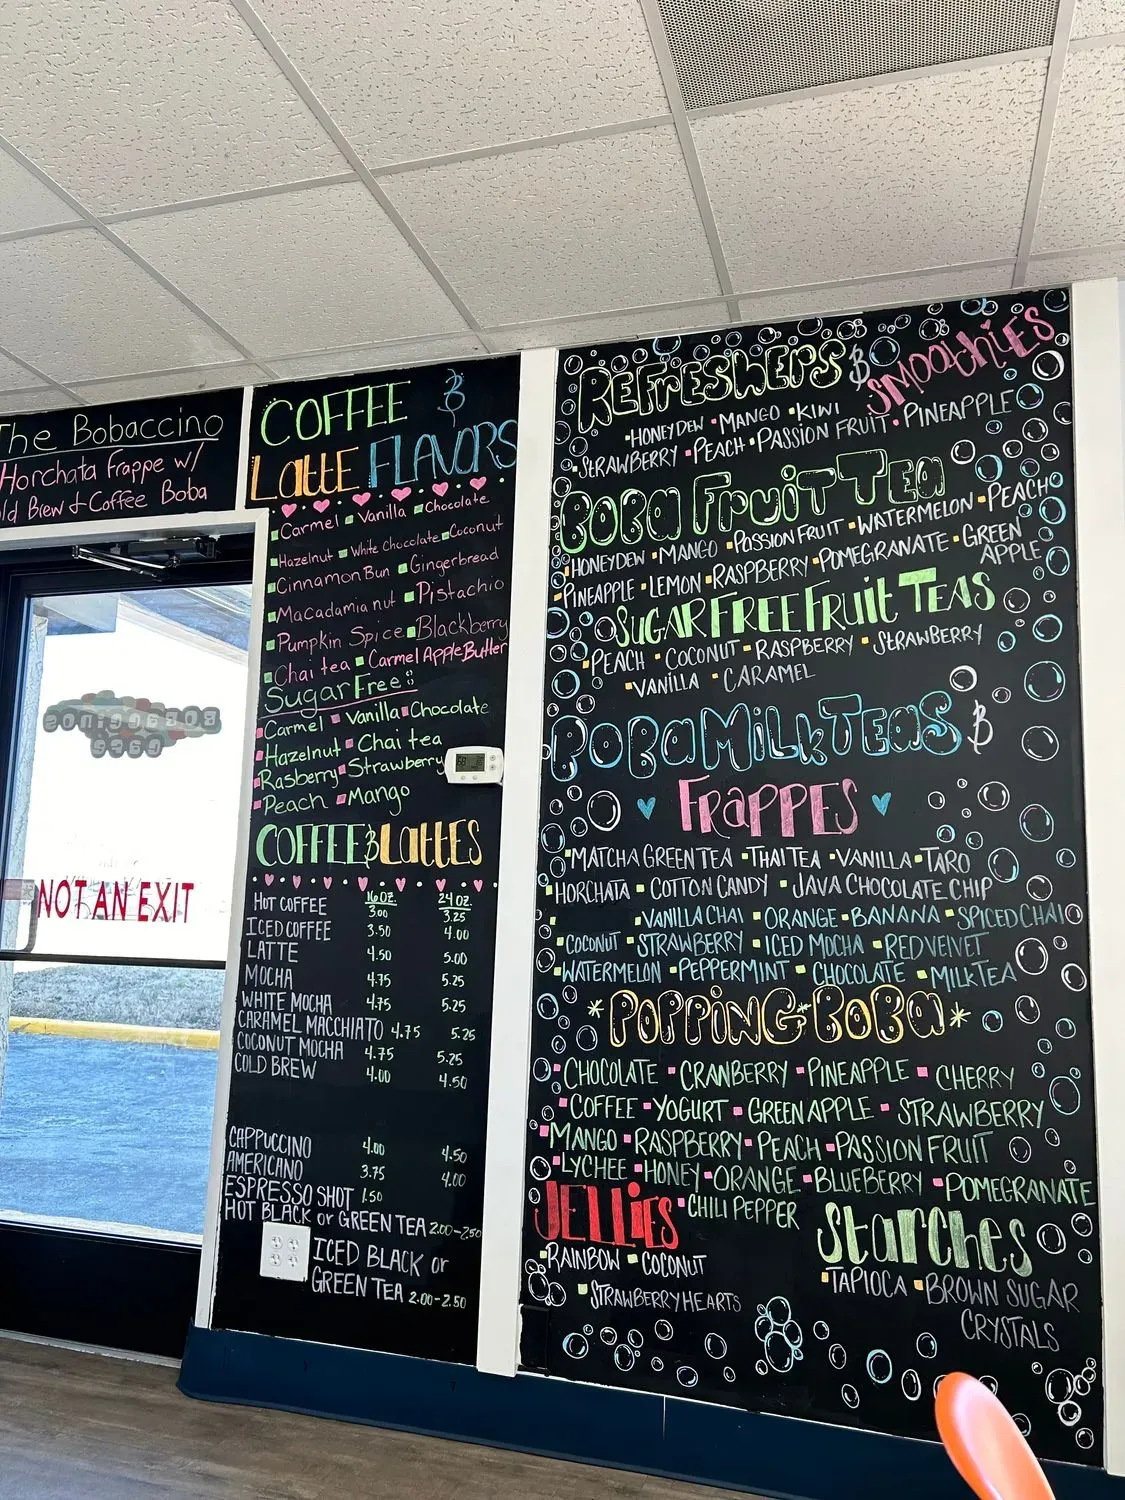 The Bobaccino
Horchata Frappe w/
ld Brew & Coffee Boba
NOT AN EXIT
COFFEE &
Latte FLAVORS
Carmel Vanilla Chocolate
Hazelnut White Chocolate Coconut
Cinnamon Bun Gingerbread
Macadamia nut Pistachio
Pumpkin Spice Blackberry
Chai tea Carmel Apple Butter
Sugar Free
Carmel Vanilla Chocolate
Hazelnut Chai tea
Rasberry Strawberry
Peach Mango
COFFEE & LATTES
16 OZ. 24 OZ.
HOT COFFEE 3.00 3.25
ICED COFFEE 3.50 4.00
LATTE 4.50 5.00
MOCHA 4.75 5.25
WHITE MOCHA 4.75 5.25
CARAMEL MACCHIATO 4.75 5.25
COCONUT MOCHA 4.75 5.25
COLD BREW 4.00 4.50
CAPPUCCINO 4.00 4.50
AMERICANO 3.75 4.00
ESPRESSO SHOT 1.50
HOT BLACK or GREEN TEA 2.00-2.50
ICED BLACK or
GREEN TEA 2.00-2.50
REFRESHERS &
SMOOTHIES
HONEYDEW MANGO KIWI
STRAWBERRY PEACH PASSION FRUIT PINEAPPLE
BOBA FRUIT TEA
HONEYDEW MANGO PASSION FRUIT WATERMELON PEACH
PINEAPPLE LEMON RASPBERRY POMEGRANATE GREEN
APPLE
SUGAR FREE FRUIT TEAS
PEACH COCONUT RASPBERRY STRAWBERRY
VANILLA CARAMEL
BOBA MILK TEAS &
FRAPPES
MATCHA GREEN TEA THAI TEA VANILLA TARO
HORCHATA COTTON CANDY JAVA CHOCOLATE CHIP
VANILLA CHAI ORANGE BANANA SPICED CHAI
COCONUT STRAWBERRY ICED MOCHA RED VELVET
WATERMELON PEPPERMINT CHOCOLATE MILK TEA
*POPPING BOBA*
CHOCOLATE CRANBERRY PINEAPPLE CHERRY
COFFEE YOGURT GREEN APPLE STRAWBERRY
MANGO RASPBERRY PEACH PASSION FRUIT
LYCHEE HONEY ORANGE BLUEBERRY POMEGRANATE
CHILI PEPPER
JELLIES
RAINBOW COCONUT
STRAWBERRY HEARTS
Starches
TAPIOCA BROWN SUGAR
CRYSTALS